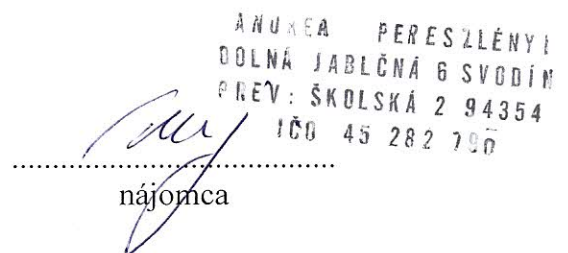 ANDREA PERESZLÉNYI
DOLNÁ JABLČNÁ 6 SVODÍN
PREV: ŠKOLSKÁ 2 94354
IČO 45 282 790
nájomca